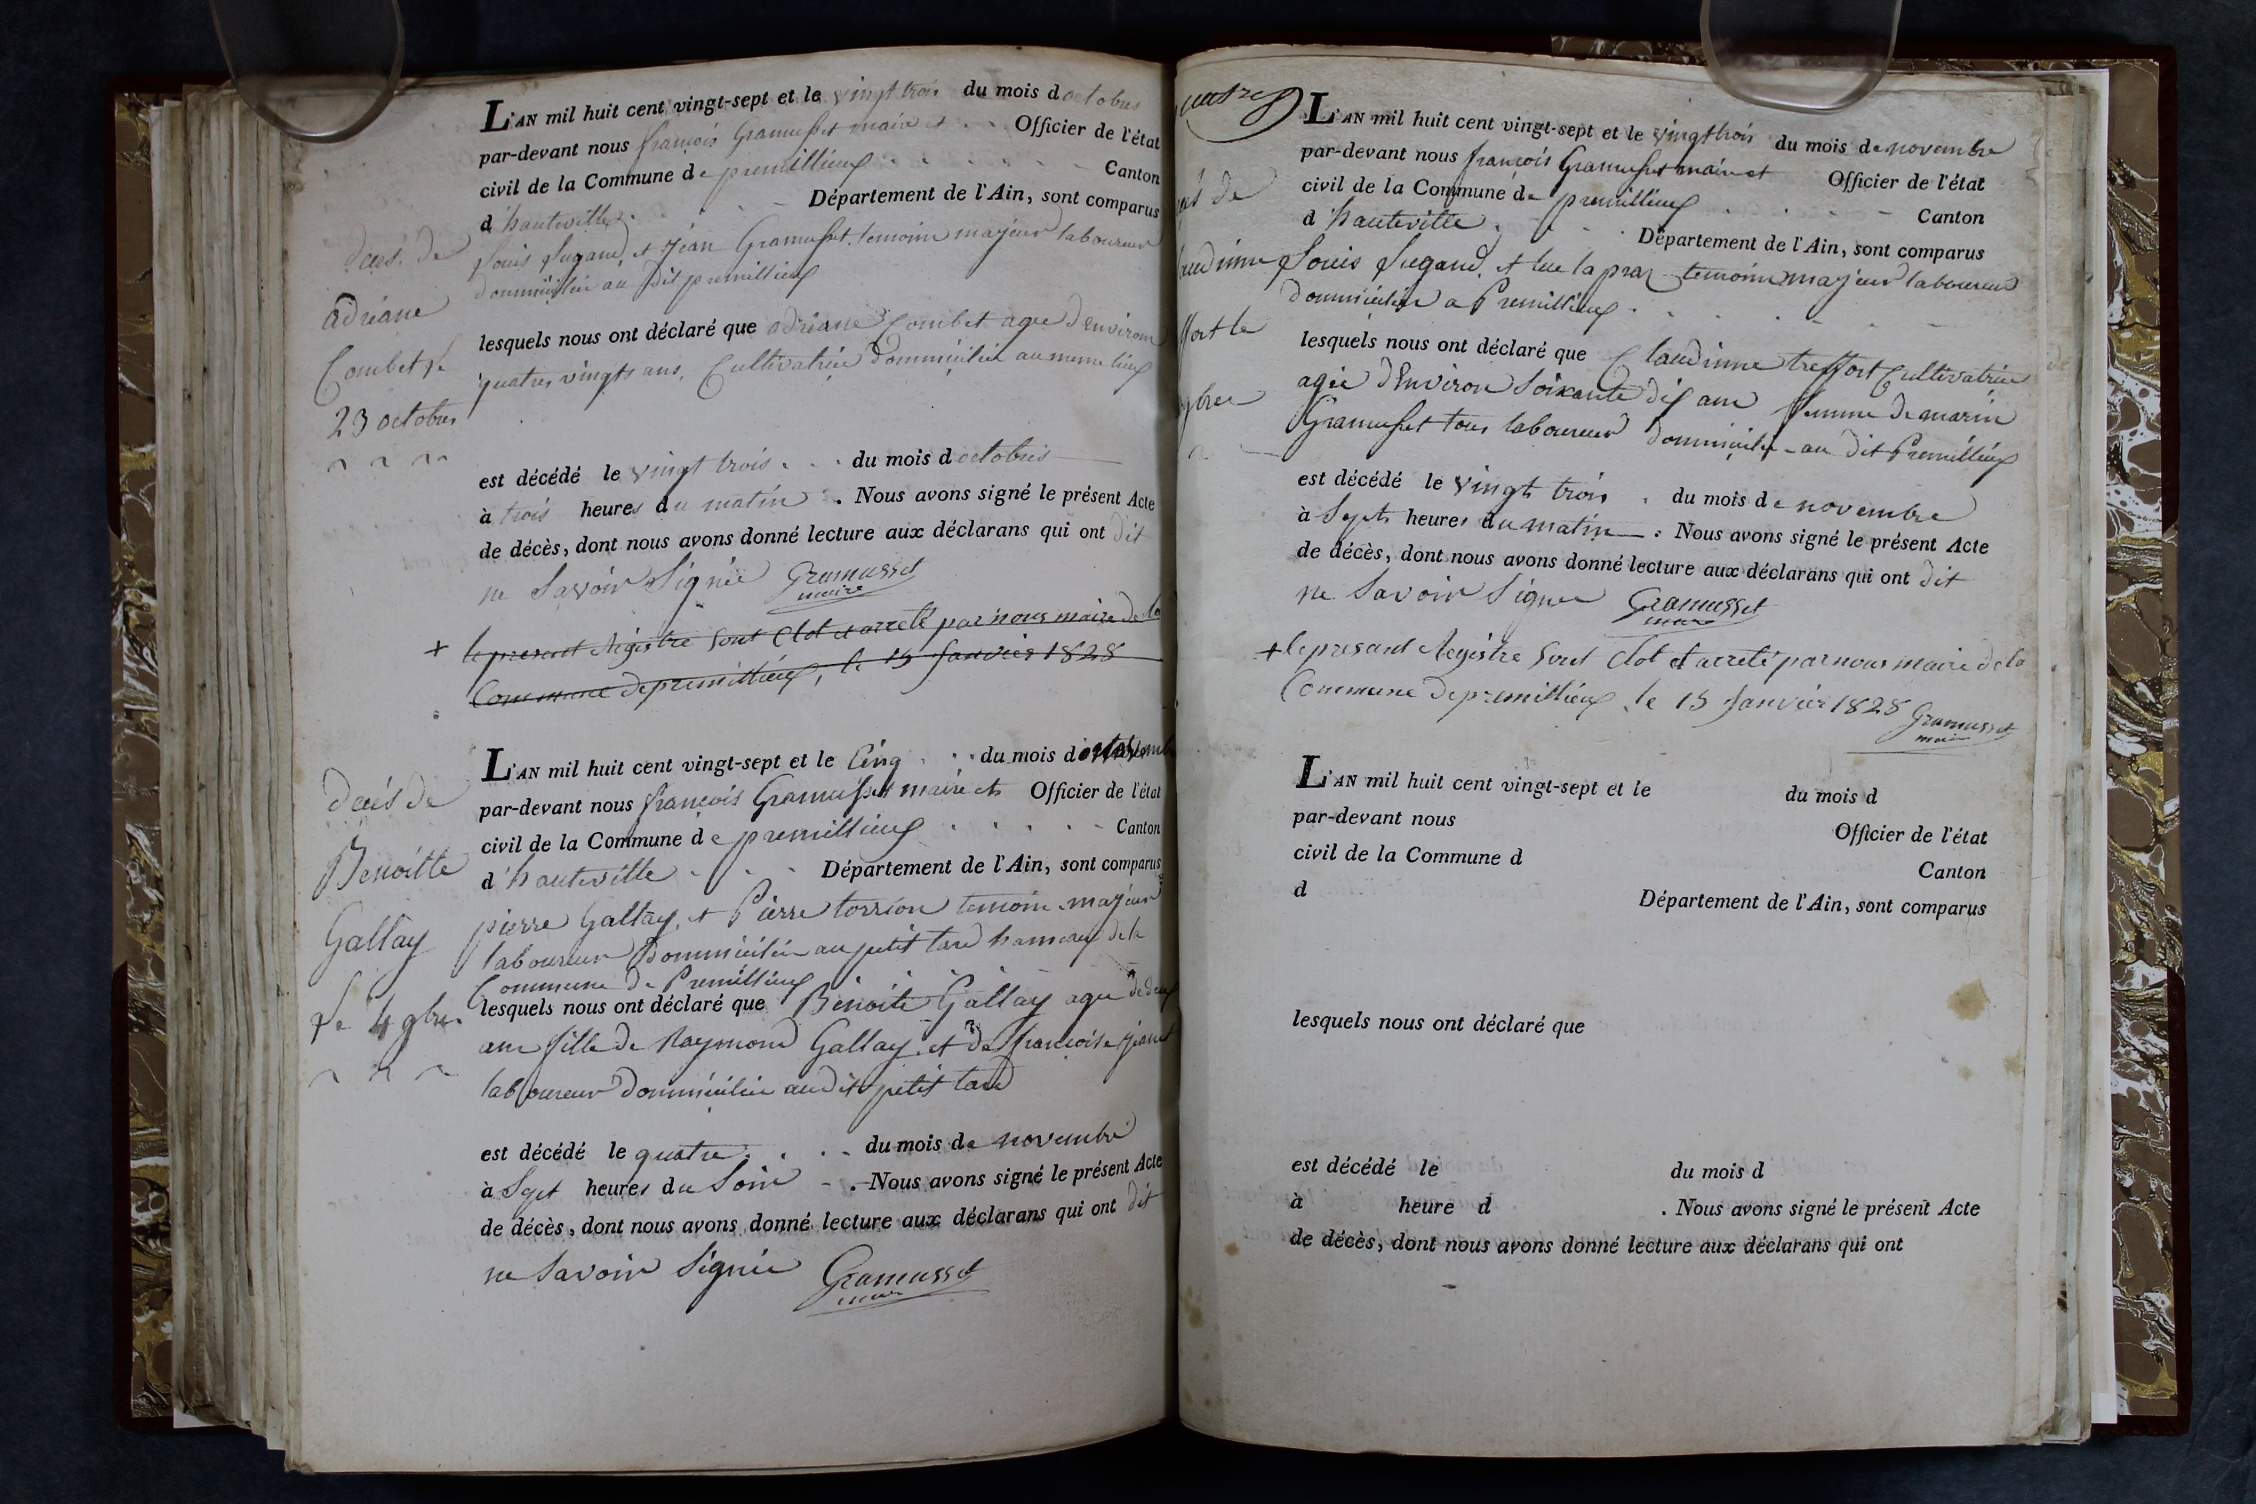 L'AN mil huit cent vingt-sept et le vingt trois du mois d octobres
par-devant nous françois Gramusset maire et Officier de l'état
civil de la Commune de premillieux Canton
d'hauteville Département de l'Ain, sont comparus
Louis Jugand et jean Gramusset temoins majeur laboureur
dommicilié au dit premillieux
lesquels nous ont déclaré que adriane Combet agee d'environ
quatres vingts ans, Cultivatrice dommicilié au meme lieux
est décédé le vingt trois du mois d octobres
à trois heures du matin . Nous avons signé le présent Acte
de décès, dont nous avons donné lecture aux déclarans qui ont dit
ne Savoir Signée Gramusset
maire
décès de
adriane
Combet le
23 octobres
+ le present Régistre sont Clot et arreté par nous maire de la
Commune de premillieux, le 15 Janvier 1828
L'AN mil huit cent vingt-sept et le Cinq du mois d novembre
par-devant nous françois Gramusset maire et Officier de l'état
civil de la Commune de premillieux Canton
d'hauteville Département de l'Ain, sont comparus
pierre Gallay et Pierre torrion temoin majeur
laboureur Dommicilié au petit tard hameaux de la
Commune de Premillieux
lesquels nous ont déclaré que Bénoite Gallay agee de deux
ans fille de Raymond Gallay et de francoise
laboureur dommicilié au dit petit tard
est décédé le quatre du mois de novembre
à Sept heures du Soir . Nous avons signé le présent Acte
de décès, dont nous avons donné lecture aux déclarans qui ont dit
ne Savoir Signée Gramusset
maire
décés de
Benoitte
Gallay
Le 4 9bre
L'AN mil huit cent vingt-sept et le vingt trois du mois de novembre
par-devant nous françois Gramusset maire et Officier de l'état
civil de la Commune de premillieux Canton
d'hauteville Département de l'Ain, sont comparus
Louis Jugand et luc la praz temoin majeur laboureur
dommicilié a Premillieux
lesquels nous ont déclaré que Claudinne treffort Cultivatrice
agée d'Environ Soixante dix ans femme de marin
Gramusset tous laboureur dommicilié au dit Premillieux
est décédé le vingt trois du mois de novembre
à Sept heures du matin . Nous avons signé le présent Acte
de décès, dont nous avons donné lecture aux déclarans qui ont dit
ne Savoir Signer Gramusset
maire
+ le presant Registre sont Clot et arreté par nous maire de la
Commune de premillieux le 15 Janvier 1828 Gramusset
maire
L'AN mil huit cent vingt-sept et le du mois d
par-devant nous Officier de l'état
civil de la Commune d Canton
d Département de l'Ain, sont comparus
lesquels nous ont déclaré que
est décédé le du mois d
à heure d . Nous avons signé le présent Acte
de décès, dont nous avons donné lecture aux déclarans qui ont